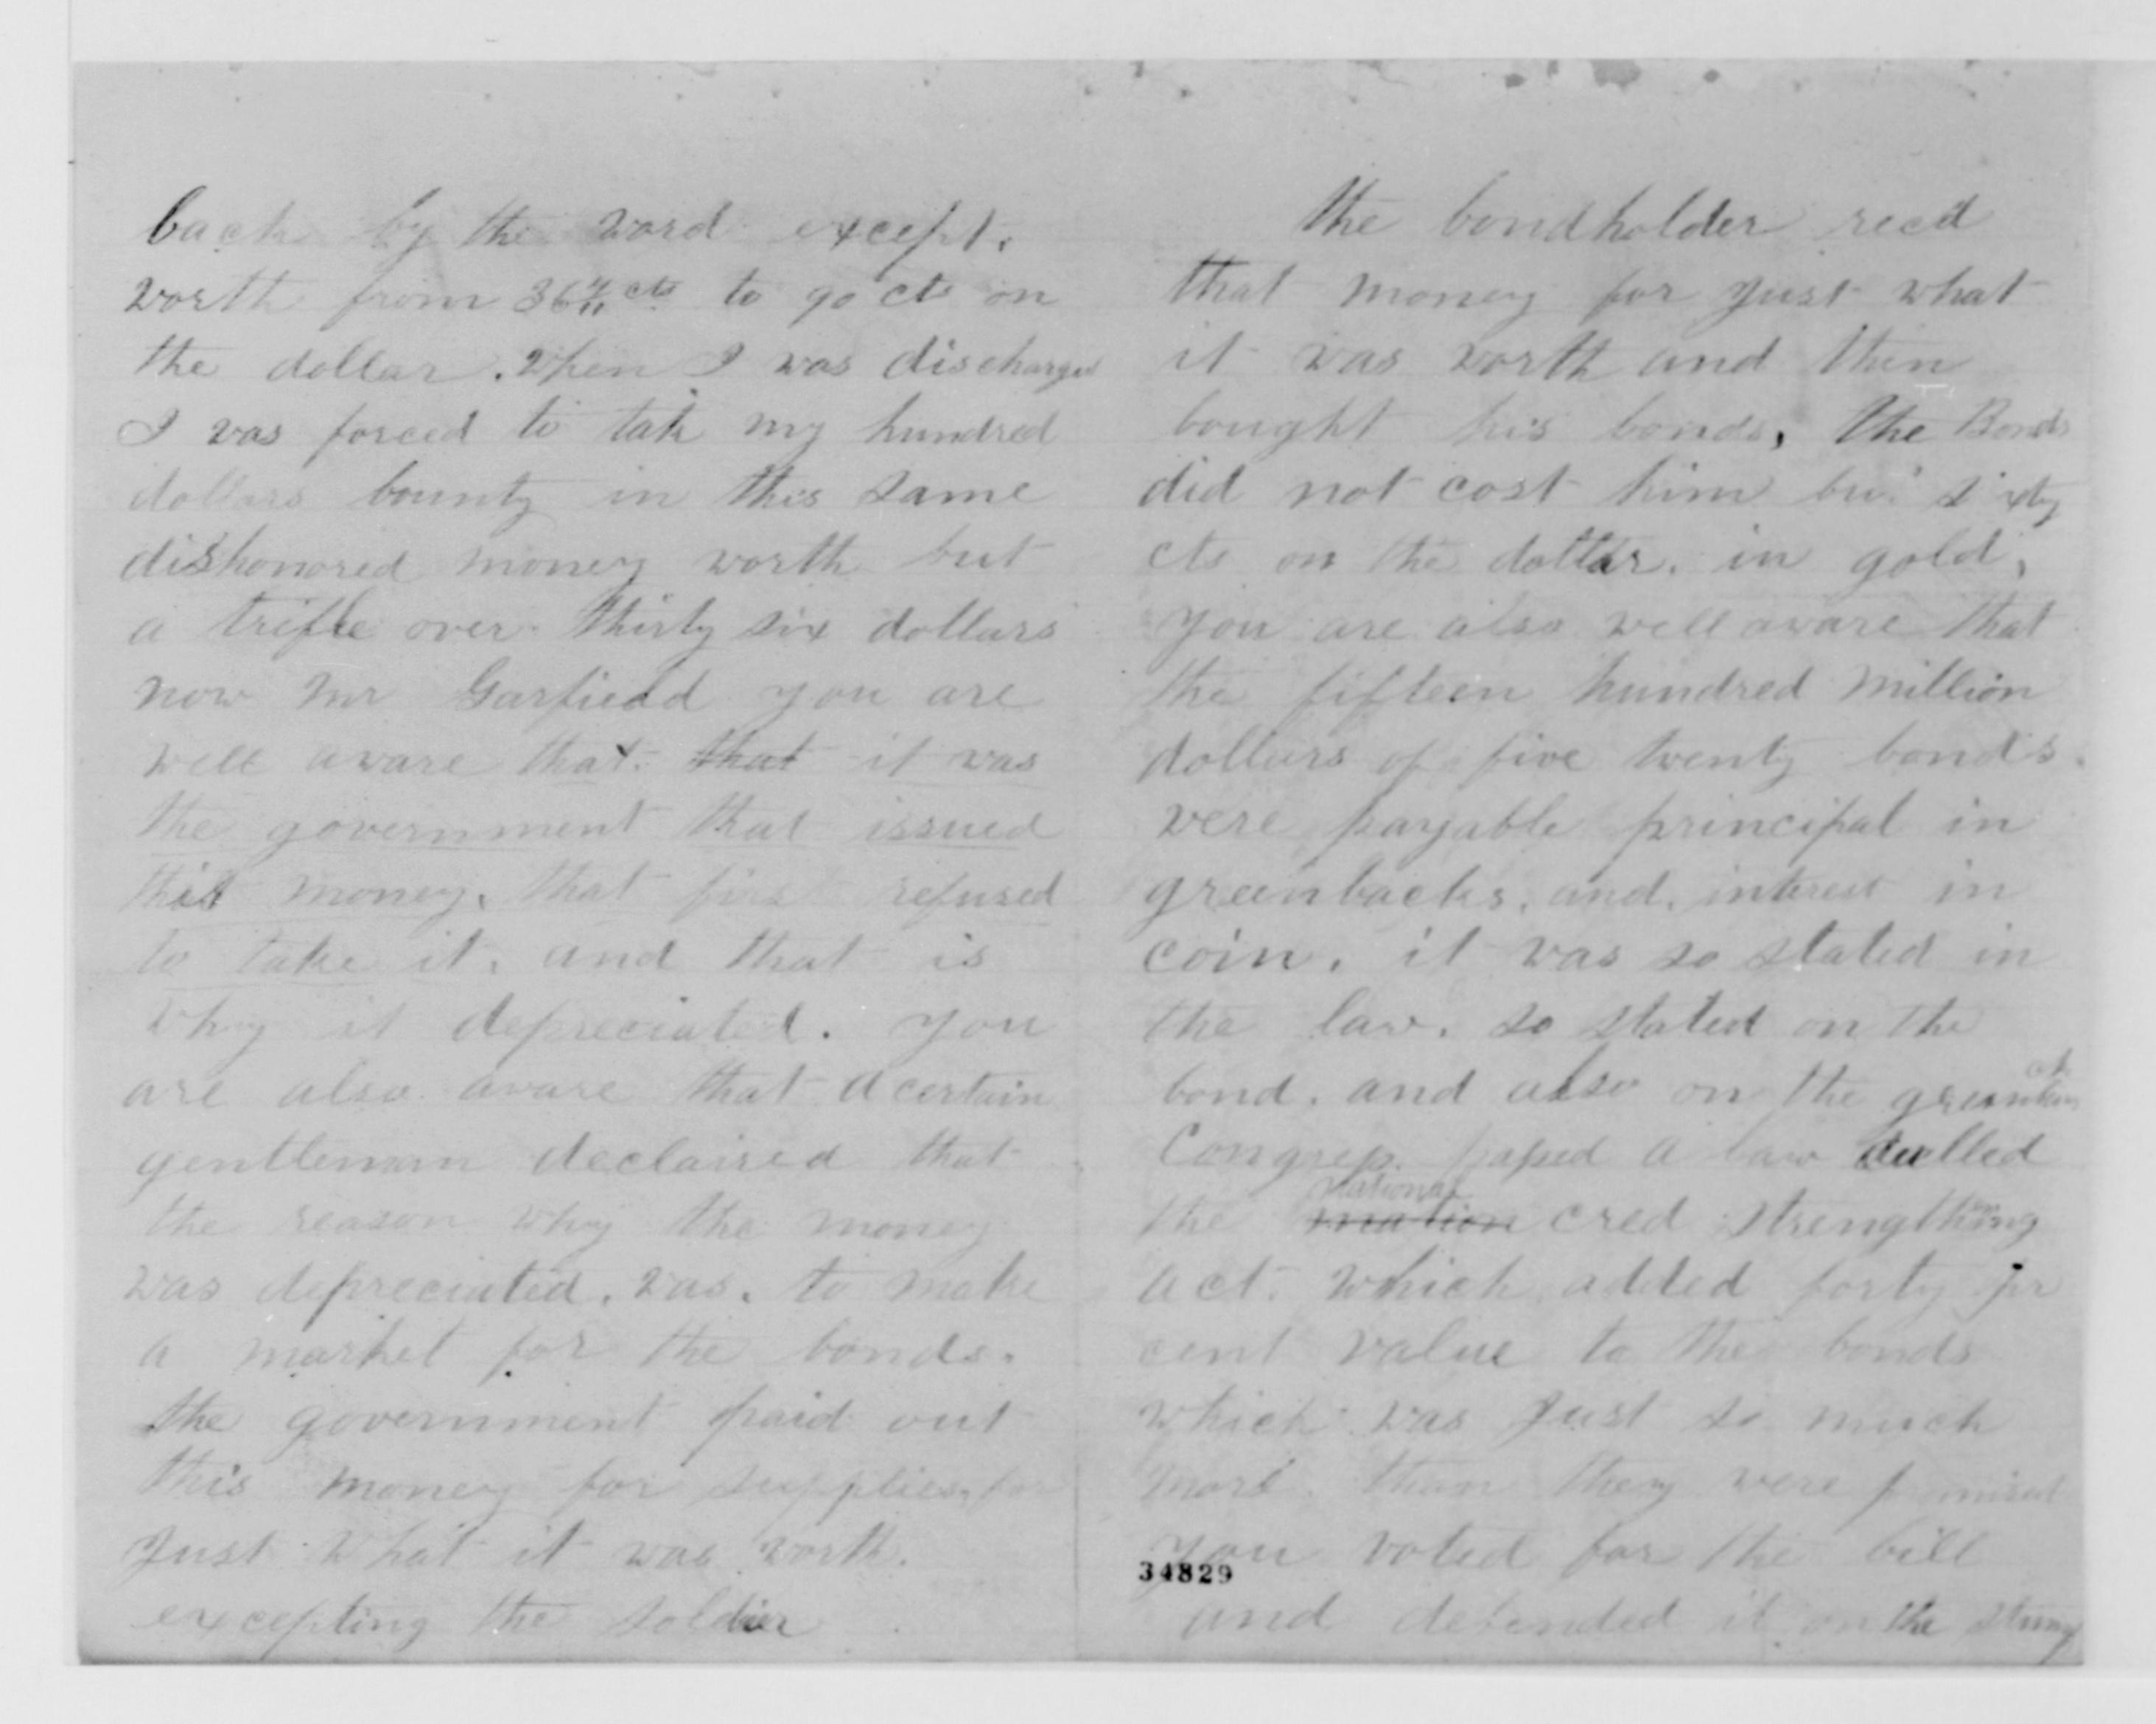 back by the word except.
worth from 36 4/11 cts to 90 cts on
the dollar. when I was discharged
I was forced to tak my hundred
dollars bounty in this same
dishonored money worth but
a trifle over thirty six dollars
now mr Garfield you are
well aware that. that it was
the government that issued
this money. that first refused
to take it. and that is
why it depreciated. you
are also aware that a certain
gentleman declaired that
the reason why the money
was depreciated. was. to make
a market for the bonds.
the government paid out
this money for supplies. for
Just what it was worth.
excepting the soldier
the bondholder recd
that money for Just what
it was worth and then
bought his bonds, the Bonds
did not cost him but sixty
cts on the dollar. in gold,
you are also well aware that
the fifteen hundred million
dollars of five twenty bonds.
were payable principal in
greenbacks. and. interest in
coin. it was so stated in
the law. so stated on the
bond. and also on the
Congress. passed a law called
the nation national cred strengthning
act. which added forty pr
cent value to the bonds
which was Just so much
more. than they were promised
you voted for the bill
and defended it on the stump
34829